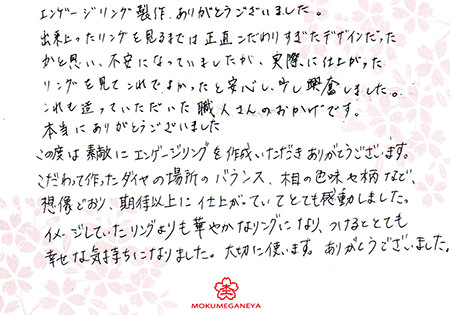 エンゲージリング製作、ありがとうございました。
出来上ったリングを見るまでは正直こだわりすぎたデザインだった
かと思い、不安になっていましたが、実際に仕上がった
リングを見てこれでよかったと安心し、少し興奮しました。
これも造っていただいた職人さんのおかげです。
本当にありがとうございました
この度は素敵にエンゲージリングを作成いただきありがとうございます。
こだわって作ったダイヤの場所のバランス、木目の色味や柄など、
想像どおり、期待以上に仕上がっていてとても感動しました。
イメージしていたリングよりも華やかなリングになり、つけるととても
幸せな気持ちになりました。大切に使います。ありがとうございました。
MOKUMEGANEYA